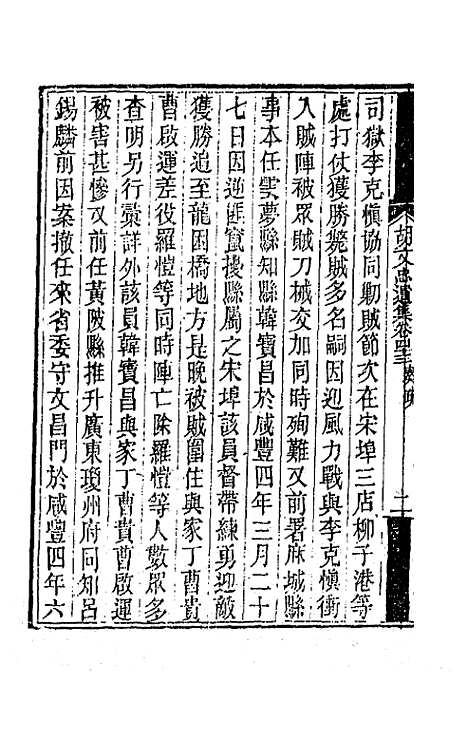 胡文忠公遺集卷
二
司獄李克愼協同勦賊節次在宋埠三店柳子港等
處打仗獲勝斃賊多名嗣因迎風力戰與李克愼衝
入賊陣被眾賊刀械交加同時殉難又前署麻城縣
事本任雲夢縣知縣韓寶昌於咸豐四年三月二十
七日因逆匪竄擾縣屬之宋埠該員督帶練勇迎敵
獲勝追至龍困橋地方是晚被賊圍住與家丁曹貴
曹啟運差役羅愷等同時陣亡除羅愷等人數眾多
查明另行彙詳外該員韓寶昌與家丁曹貴曹啟運
被害甚慘又前任黃陂縣推升廣東瓊州府同知呂
錫麟前因案撤任來省委守文昌門於咸豐四年六